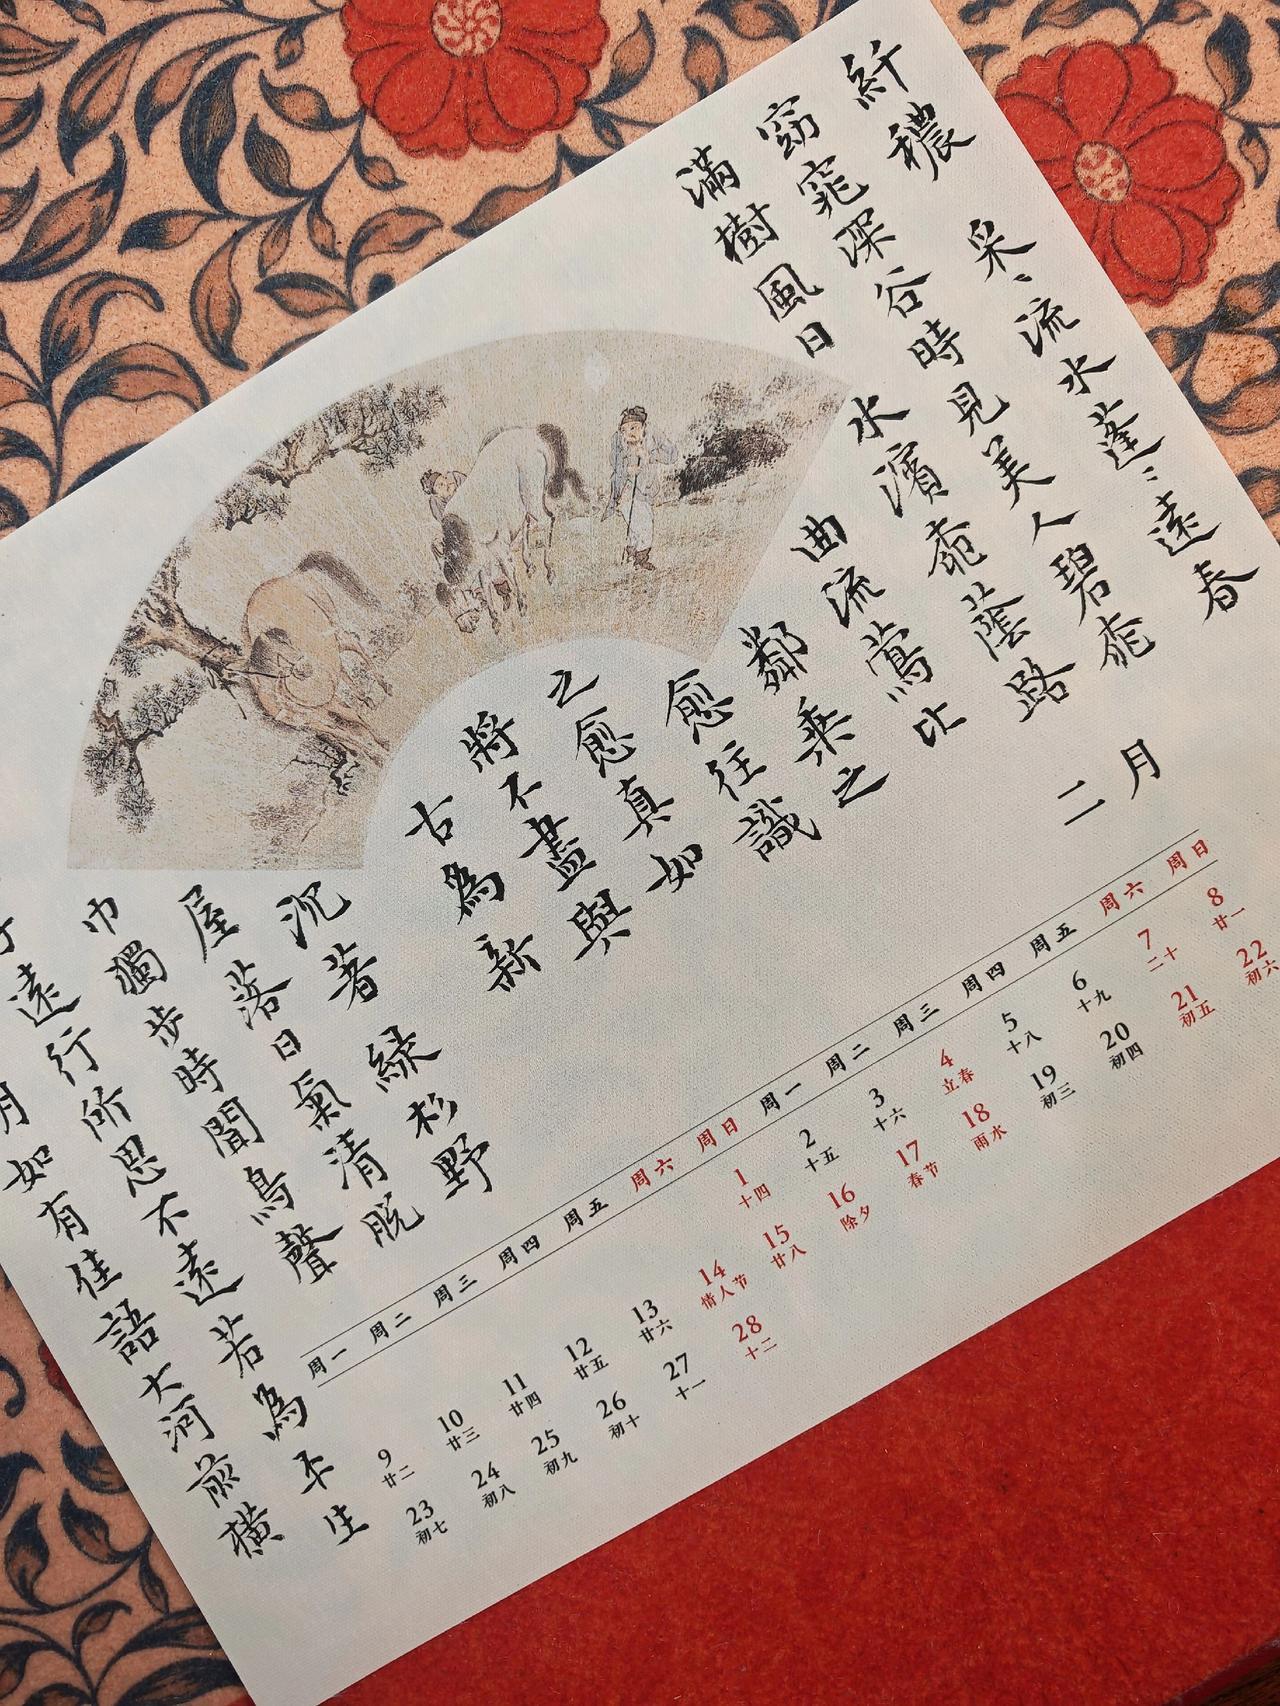 纤穠 采〻流水蓬〻遠春
窈窕深谷時見美人碧桃
滿樹風日 水濱柳蔭路
曲流鶯比
鄰乘之
愈往識
之愈真如
將不盡與
古為新
沉著 綠杉野
屋落日氣清脫
巾獨步時聞鳥聲
遠行所思不遠若為平生
月如有佳語大河前橫
二月
周一 周二 周三 周四 周五 周六 周日 周一 周二 周三 周四 周五 周六 周日
1 2 3 4 5 6 7 8
十四 十五 十六 立春 十八 十九 二十 廿一
9 10 11 12 13 14 15 16 17 18 19 20 21 22
廿二 廿三 廿四 廿五 廿六 情人节 廿八 除夕 春节 雨水 初三 初四 初五 初六
23 24 25 26 27 28
初七 初八 初九 初十 十一 十二